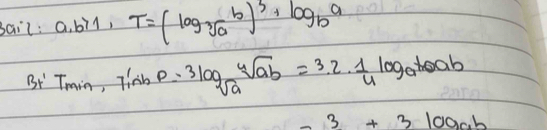 Bài 2: a,b>1, T = (log_{∛a} b)³ + log_b a
Bt' T min, Tính P = 3 log_{√a} ⁴√ab = 3.2. 1/4 log_a ab
= 3 + 3 log_a b